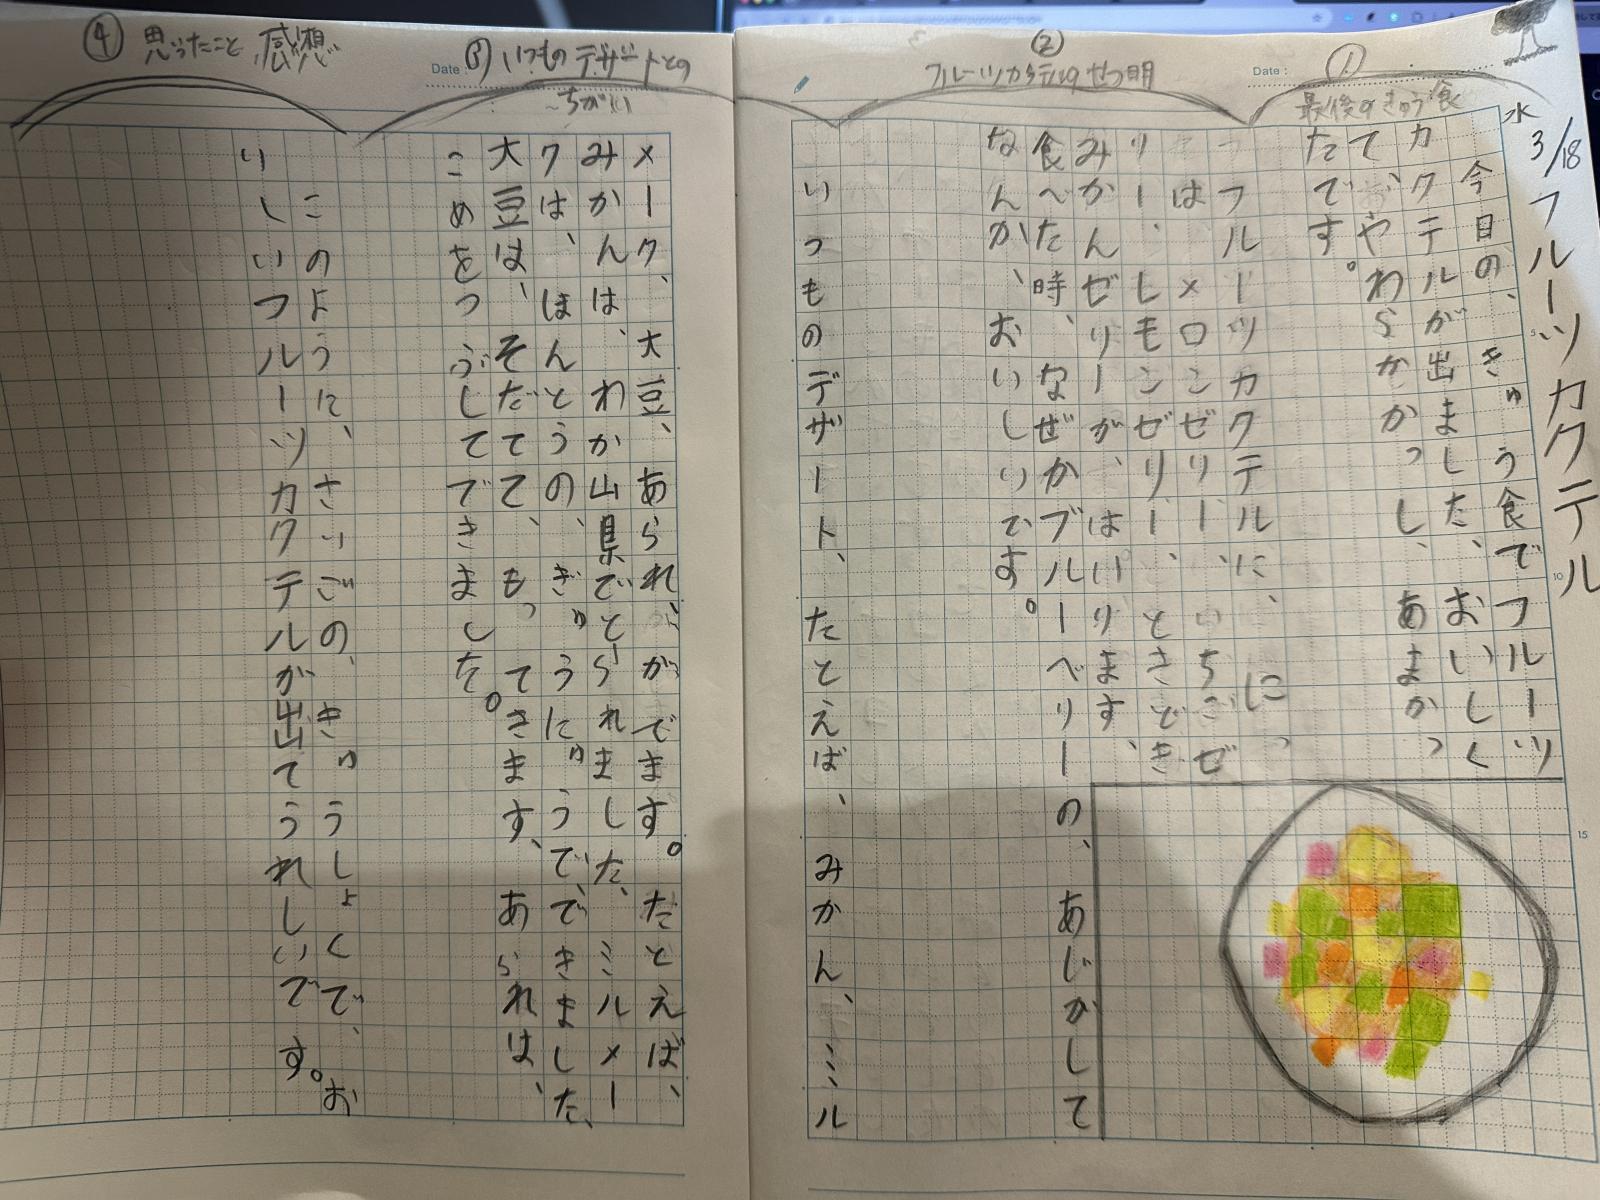 水
3/18
フルーツカクテル
①
最後のきゅう食
今日の、きゅう食でフルーツ
カクテルが出ました、おいしく
て、やわらかかっし、あまかっ
たです。
②
フルーツカクテルのせつ明
フルーツカクテルに、に、
はメロンゼリー、いちごゼ
リー、レモンゼリー、ときどき
みかんゼリーが、はいります、
食べた時、なぜかブルーベリーの、あじかして
なんか、おいしいりです。
いつものデザート、たとえば、みかん、ミル
③
いつものデザートとの
～ちがい
メーク、大豆、あられ、がでます。たとえば、
みかんは、わか山県でとられました、ミルメー
クは、ほんとうの、ぎゅうにゅうで、できました、
大豆は、そだてて、もってきます、あられは、
こめをつぶしてできました。
④
思ったこと 感想
このように、さいごの、きゅうしょくで、お
いしいフルーツカクテルが出てうれしいです。